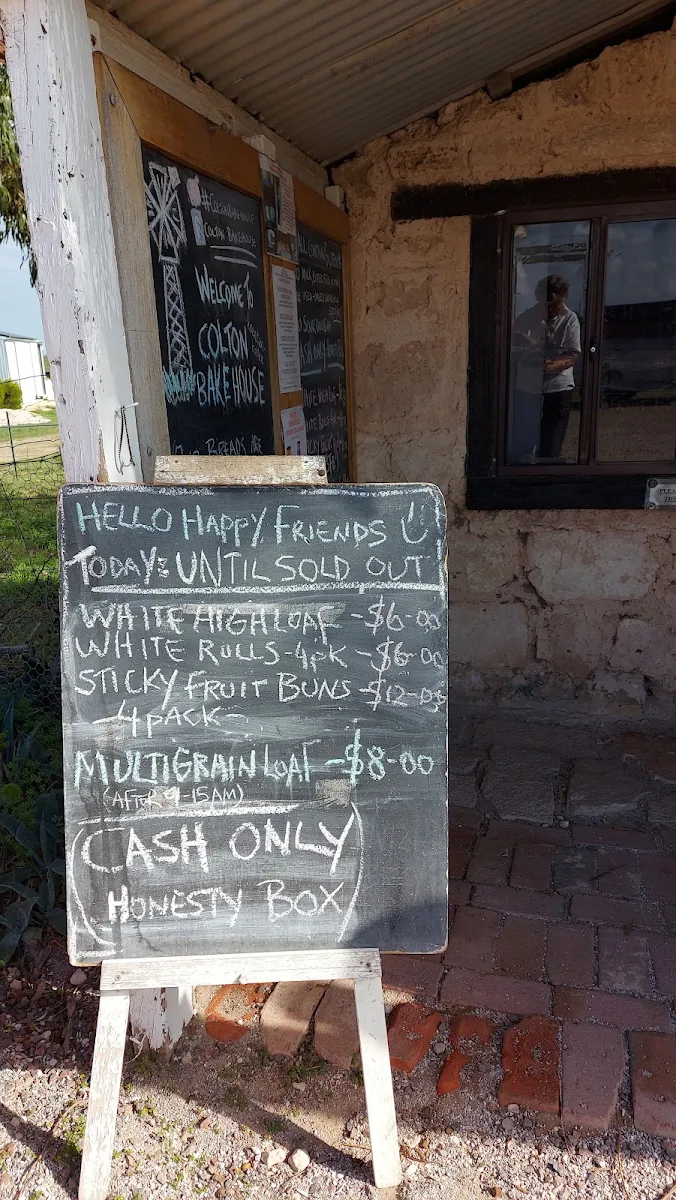 #COLTONBAKEHOUSE
COLTON BAKEHOUSE
WELCOME TO
COLTON
BAKEHOUSE
BREADS ARE
HELLO HAPPY FRIENDS
TODAY: UNTIL SOLD OUT
WHITE HIGH LOAF - $6-00
WHITE ROLLS-4PK - $6-00
STICKY FRUIT BUNS - $12-00
-4 PACK-
MULTIGRAIN LOAF - $8-00
(AFTER 9-15AM)
(CASH ONLY
HONESTY BOX)